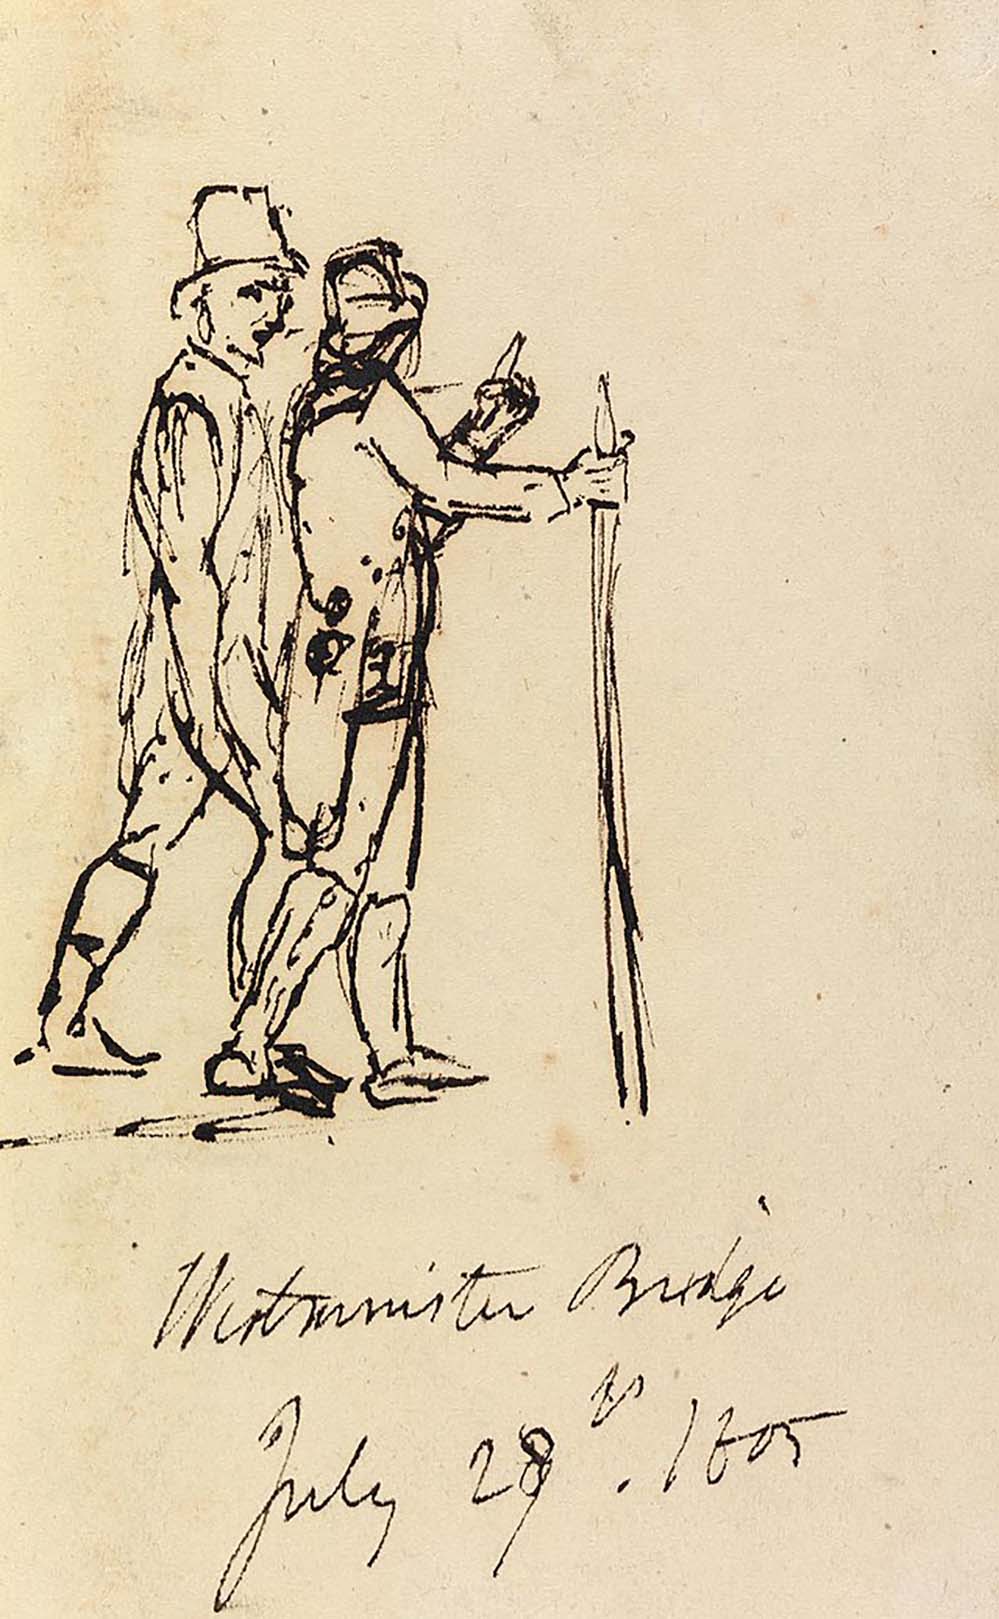 Westminster Bridge
July 29th. 1805